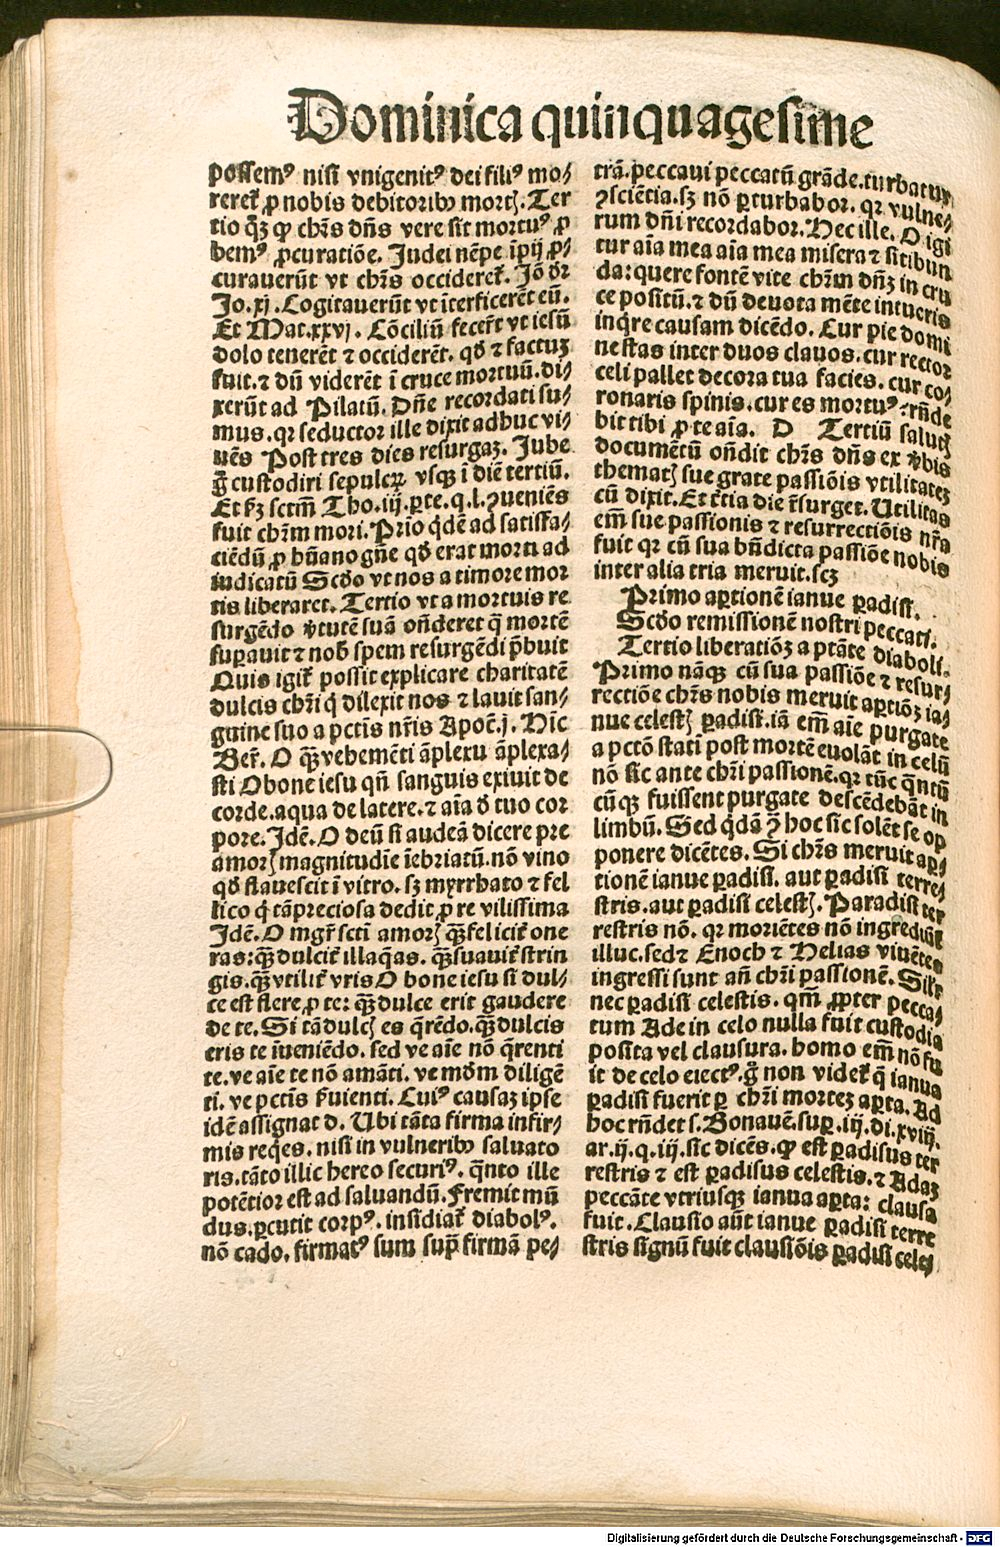 Dominica quinquagesime
possemꝰ nisi vnigenitꝰ dei filiꝰ mo⸗
reret᷑ ꝓ nobis debitoribꝰ mortꝭ. Ter
tio qꝫ ꝙ chr̄s dn̄s vere sit mortuꝰ ꝓ
bemꝰ ꝓcuratiōe. Judei nēpe īpij ꝓ⸗
curauerūt vt chr̄s occideret᷑. Jō dr̄
Jo.xj. Cogitauerūt vt īterficerēt eū.
Et Mat.xxvj. Cōciliū fecert̄ vt iesū
dolo tenerēt ⁊ occiderēt. qd̄ ⁊ factuꝫ
fuit. ⁊ dū viderēt ī cruce mortuū. di⸗
xerūt ad Pilatū. Dn̄e recordati su⸗
mus. qꝛ seductor ille dixit adhuc vi⸗
uēs Post tres dies resurgaꝫ. Jube
g̊ custodiri sepulcꝝ vsqꝫ ī diē tertiū.
Et ẜꝫ sctm̄ Tho.iij.ꝑte.q.l. ꝯueniēs
fuit chr̄m mori. Prīo qͥdē ad satisfa⸗
ciēdū ꝓ hūano gn̄e qd̄ erat morti ad
iudicatū Scd̄o vt nos a timore mor
tis liberaret. Tertio vt a mortuis re
surgēdo v̓tutē suā on̄deret q̄ mortē
suꝑauit ⁊ nob̄ spem resurgēdi p̄buit
Quis igit᷑ possit explicare charitatē
dulcis chr̄i qͥ dilexit nos ⁊ lauit san⸗
guine suo a pctīs nr̄is Apoc̄.j. Hīc
Ber̄. O qꝫ̄vehemēti āplexu āplexa⸗
sti O bone iesu qn̄ sanguis exiuit de
corde. aqua de latere. ⁊ aīa d̄ tuo cor
pore. Jdē. O deū si audeā dicere pre
amorꝭ magnitudīe īebriatū. nō vino
qd̄ flauescit ī vitro. sꝫ myrrhato ⁊ fel
lico qͥ tā preciosa dedit ꝓ re vilissima
Jdē. O mgr̄ scti amorꝭ qꝫ̄felicit᷑ one
ras: qꝫ̄dulcit᷑ illaq̄as. qꝫ̄suauit᷑ strin
gis. qꝫ̄vtilit᷑ vris O bone iesu si dul⸗
ce est flere ꝓ te: qꝫ̄ dulce erit gaudere
de te. Si tā dulcꝭ es q̄rēdo. qꝫ̄dulcis
eris te īueniēdo. sed ve aīe nō q̄renti
te. ve aīe te nō amāti. ve mōm diligē
ti. ve pctīs ẜuienti. Cuiꝰ causaꝫ ipse
idē assignat d. Ubi tāta firma infir⸗
mis req̇es. nisi in vulneribꝰ saluato
ris. tāto illic hereo securiꝰ. qͣnto ille
potētior est ad saluandū. Fremit mū
dus. ꝑcutit corpꝰ. insidiat᷑ diabolꝰ.
nō cado. firmatꝰ sum supͣ firmā pe⸗
trā. peccaui peccatū grāde. turbatur
ꝯsciētia. sꝫ nō ꝑturbabor. qꝛ vulne⸗
rum dn̄i recordabor. Hec ille. O igi
tur aīa mea aīa mea misera ⁊ sitibun
da: quere fontē vite chr̄m dn̄ꝫ in cru
ce positū. ⁊ dū deuota mēte intueris
inq̇re causam dicēdo. Cur pie domi
ne stas inter duos clauos. cur rector
celi pallet decora tua facies. cur co⸗
ronaris spinis. cur es mortuꝰ: rn̄de
bit tibi ꝓ te aīa. D Tertiū salutꝭ
documētū on̄dit chr̄s dn̄s ex v̓bis
thematꝭ sue grate passiōis vtilitateꝫ
cū dixit. Et t̓cia die r̄surget. Utilitas
em̄ sue passionis ⁊ resurrectiōis nr̄a
fuit qꝛ cū sua bn̄dicta passiōe nobis
inter alia tria meruit. scꝫ
Primo aꝑtionē ianue ꝑadisi.
Scd̄o remissionē nostri peccati.
Tertio liberatiōꝫ a ptāte diaboli.
Primo nāqꝫ cū sua passiōe ⁊ resur⸗
rectiōe chr̄s nobis meruit aꝑtiōꝫ ia⸗
nue celestꝭ ꝑadisi. iā em̄ aīe purgate
a pctō stati post mortē euolāt in celū
nō sic ante chr̄i passionē. qꝛ tūc qͣntū
cūqꝫ fuissent purgate descēdebāt in
limbū. Sed qͥdā ī hoc sic solēt se op
ponere dicētes. Si chr̄s meruit aꝑ⸗
tionē ianue ꝑadisi. aut ꝑadisi terre⸗
stris. aut ꝑadisi celestꝭ. Paradisi ter
restris nō. qꝛ moriētes nō ingrediūt᷑
illuc. sed ⁊ Enoch ⁊ Helias viuētes
ingressi sunt an̄ chr̄i passionē. Silr̄
nec ꝑadisi celestis. qm̄ ꝓpter pecca⸗
tum Ade in celo nulla fuit custodia
posita vel clausura. homo em̄ nō fu
it de celo eiectꝰ. g̊ non videt᷑ q̄ ianua
ꝑadisi fuerit ꝑ chr̄i morteꝫ aꝑta. Ad
hoc rn̄det s. Bonauē. suꝑ .iij.di.xviij.
ar.ij.q.iij. sic dicēs. ꝙ est ꝑadisus ter
restris ⁊ est ꝑadisus celestis. ⁊ Adaꝫ
peccāte vtriusqꝫ ianua aꝑta: clausa
fuit. Clausio aūt ianue ꝑadisi terre
stris signū fuit clausiōis ꝑadisi celes
Digitalisierung gefördert durch die Deutsche Forschungsgemeinschaft - DFG